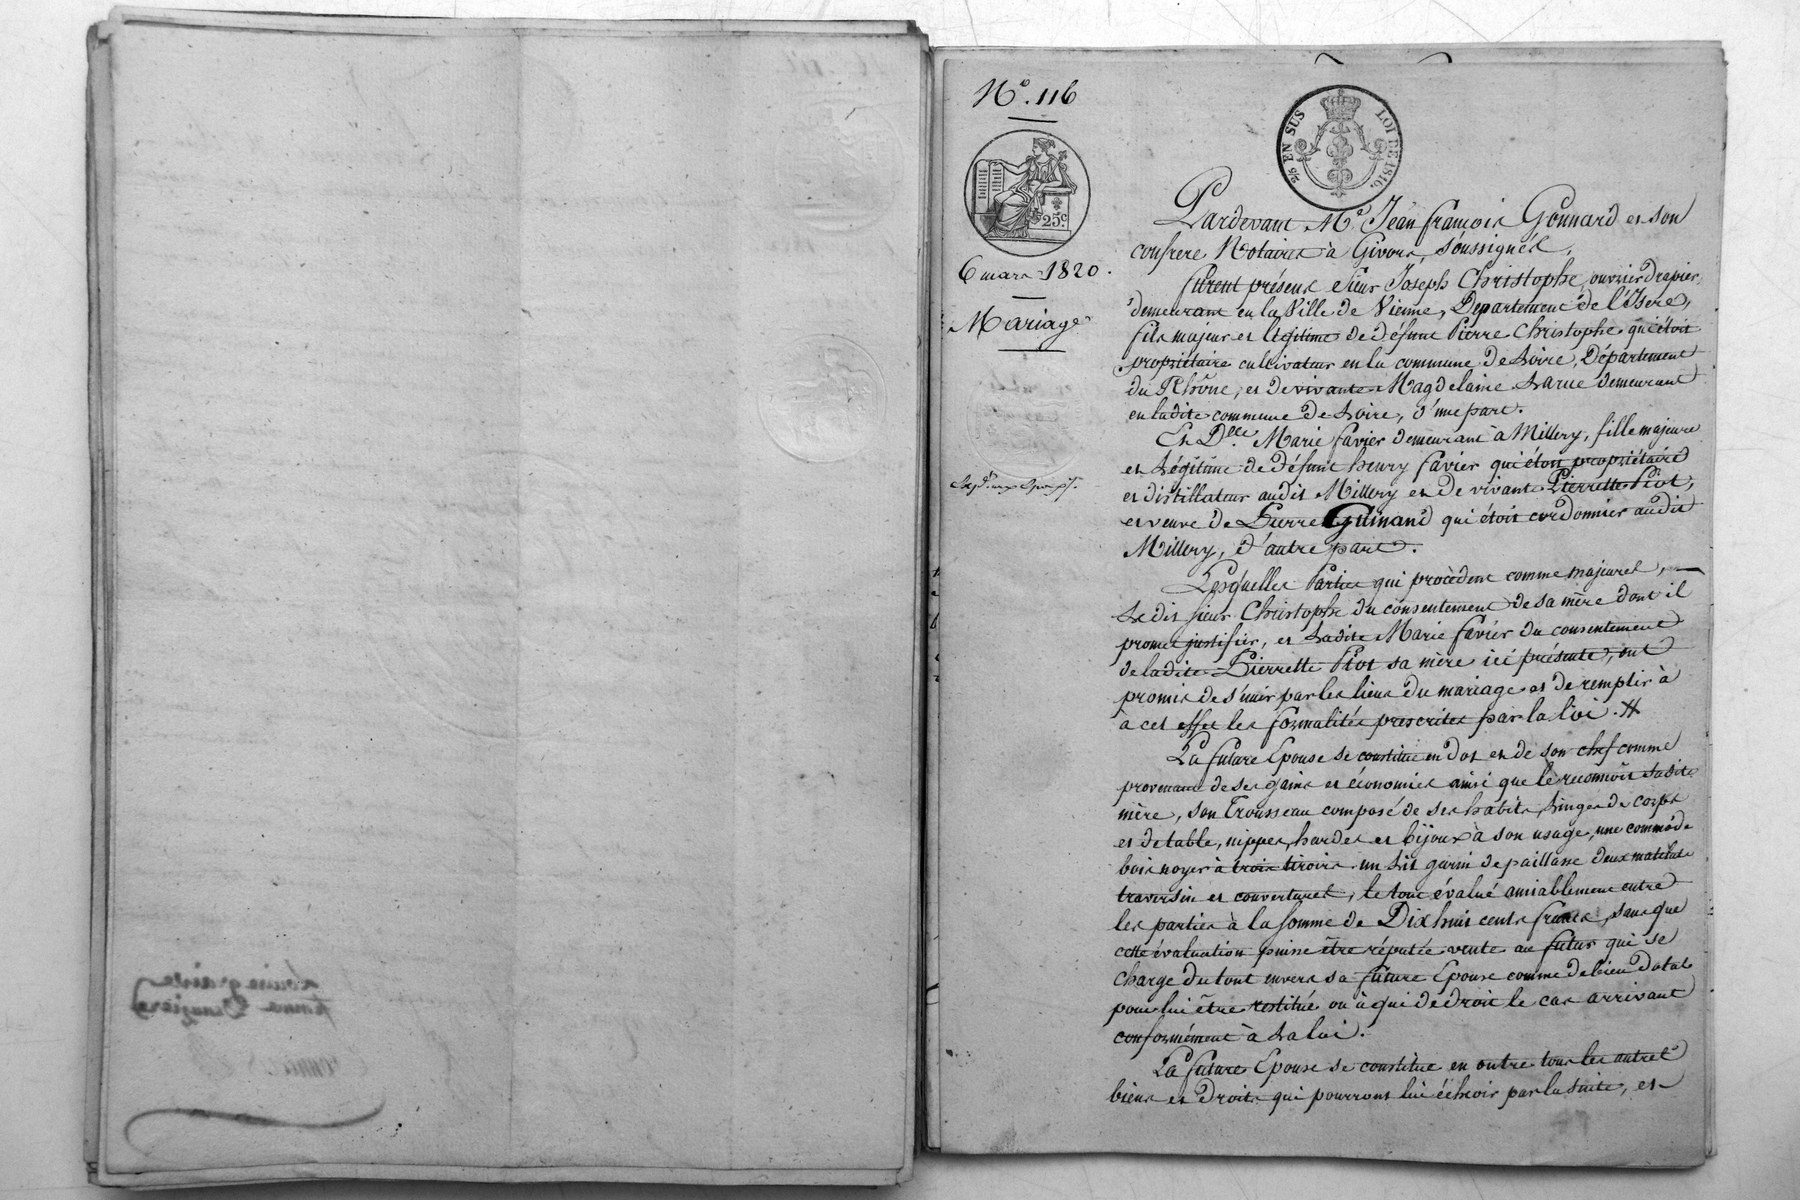 N.° 116
2/5 EN SUS LOI DE 1816.
25.c
6 mars 1820.
Mariage
Pardevant M.e Jean françois Gonnard et son
confrere Notaires à Givors, soussignés,
furent présens sieur Joseph Christophe, ouvrier drapier,
demeurant en la Ville de Vienne, Département de l'Isere,
fils majeur et légitime de défunt Pierre Christophe qui étoit
propriétaire cultivateur en la commune de Loire, Département
du Rhône, et de vivante Magdelaine Larue demeurant
en ladite commune de Loire, d'une part.
Et D.lle Marie favier demeurant à Millery, fille majeure
et Légitime de défunt henry favier qui étoit propriétaire
et distillateur audit Millery et de vivante Pierrette Piot,
et veuve de Pierre Guinand qui étoit cordonnier audit
Millery, d'autre part.
Lesquelles Parties qui procèdent comme majeures,
Le dit sieur Christophe du consentement de sa mère dont il
promet justifier, et Ladite Marie favier du consentement
de ladite Pierrette Piot sa mère ici présente, ont
promis de s'unir par les liens du mariage et de remplir à
à cet effet les formalités prescrites par la loi.
La future Epouse se constitue en dot et de son chef comme
provenant de ses gains et économies ainsi que le reconnoit sadite
mère, son Trousseau composé de ses habits, Linges de corps
et de table, nippes, hardes et bijoux à son usage, une commode
bois noyer à trois tiroirs un Lit garni de paillasse deux matelats
traversin et couvertures, le tout évalué amiablement entre
les parties à la somme de Dix huit cents francs, sans que
cette évaluation puisse être réputée vente au futur qui se
charge du tout envers sa future Epouse comme de bien dotal
pour lui être restitué ou à qui de droit le cas arrivant
conformément à La loi.
La future Epouse se constitue en outre tous les autres
biens et droits qui pourront lui échoir par la suite, et